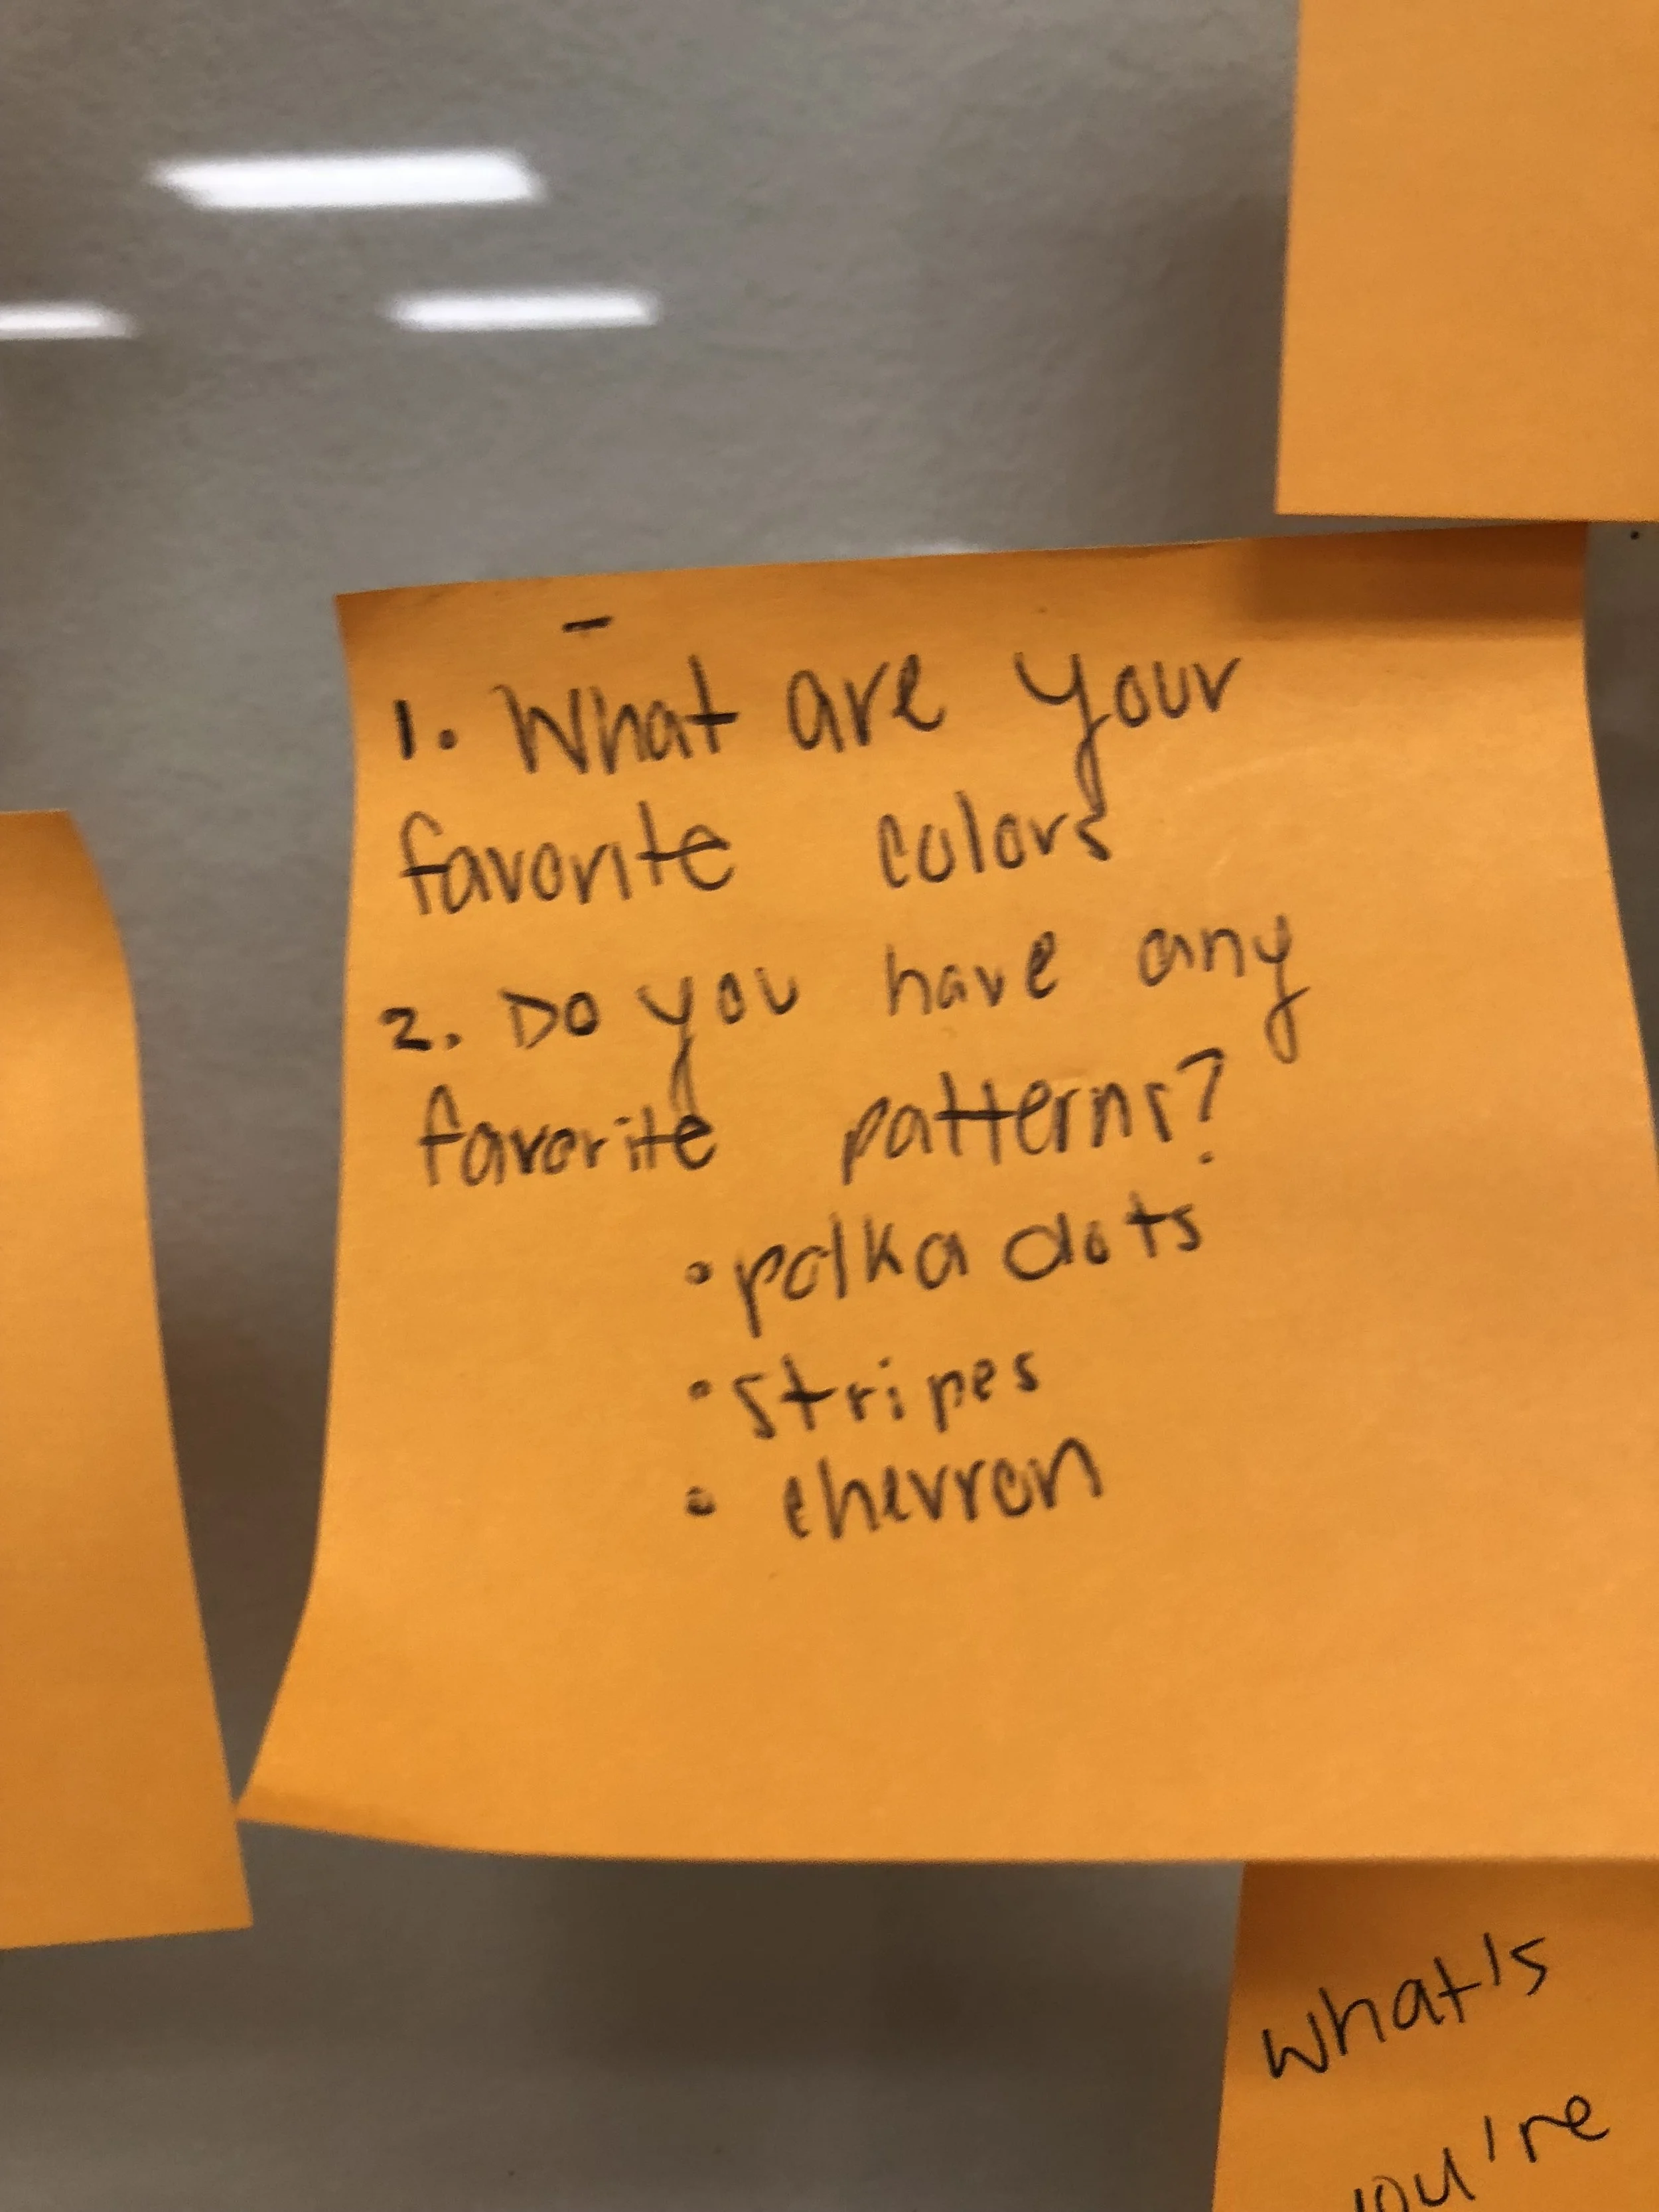 1. What are your
favorite colors
2. Do you have any
favorite patterns?
• polka dots
• stripes
• chevron
what's
you're